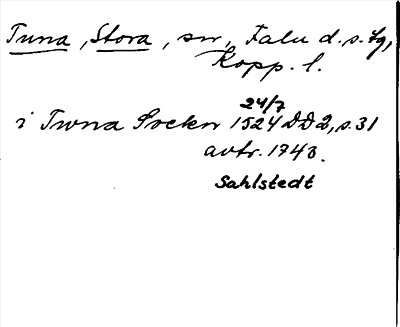 Tuna, Stora, sn, Falu d.s. tg,
Kopp. l.
24/7
i Twna Socken 1524 DD2, s. 31
avtr. 1743.
Sahlstedt